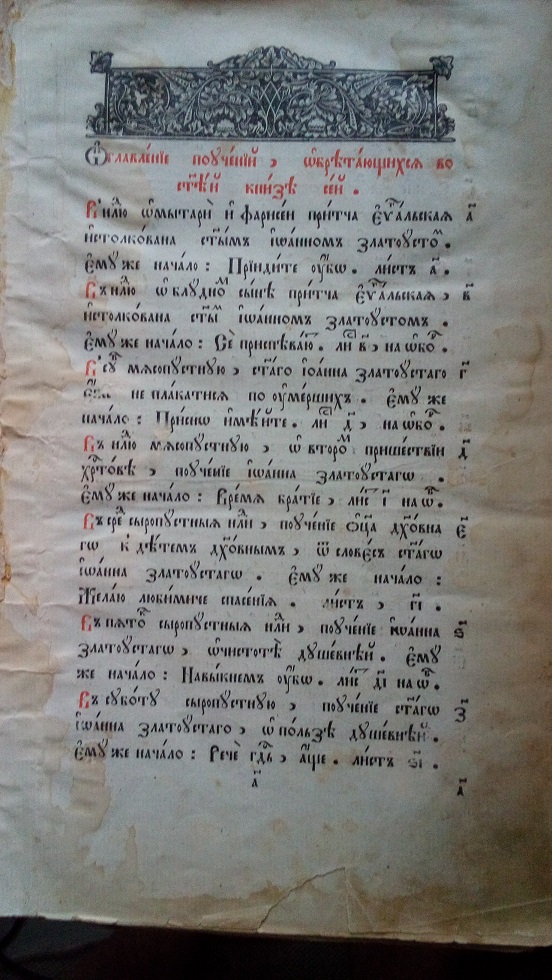 Ѡ҆главле́нїе поꙋче́нїй , ѡ҆брѣта́ющихсѧ во
ст҃ѣ́й кни́зѣ се́й .
В̾ нлⷧ҇ю ѡ҆ мытарѝ и҆ фарисе́и при́тча є҆ѵⷢ҇а́льскаѧ а҃
и҆столко́вана ст҃ы́мъ і҆ѡа́нномъ златоꙋсто́ⷨ .
є҆мꙋ́же нача́ло : Прїиди́те оу҆̀бѡ . ли́стъ а҃ .
Въ нлⷧ҇ю ѡ҆ блꙋ́дноⷨ сы́нѣ при́тча є҆ѵⷢ҇а́льскаѧ , в҃
и҆столко́вана ст҃ы́ⷨ і҆ѡа́нномъ златоꙋстомъ .
є҆мꙋ́же нача́ло : Сѐ приспѣва́ю . лиⷭ҇ в҃ , на ѡ҆бо́ⷬ .
В̾ сꙋⷠ҇ мѧсопꙋ́стнꙋю , ст҃а́гѡ і҆ѡа́нна златоꙋ́стаго г҃
не пла́катисѧ по оу҆ме́ршихъ . є҆мꙋ́же
нача́ло : При́снѡ и҆мѣ́йте . лиⷭ҇ д҃ , на ѡ҆бо́ⷬ .
Въ нлⷧ҇ю мѧсопꙋ́стнꙋю , ѡ҆ второ́ⷨ прише́ствїи д҃
хрⷭ҇то́вѣ , поꙋче́нїе і҆ѡа́нна златоꙋ́стагѡ .
є҆мꙋ́же нача́ло : Вре́мѧ бра́тїе , лиⷭ҇ і҃ на ѡ҆б .
Въ среⷣ сыропꙋ́стныѧ нлⷧ҇и , поꙋче́нїе ѻ҆ц҃а̀ дх҃о́вна є҃
гѡ к̾ дѣ́темъ дх҃о́внымъ , ѿ слове́съ ст҃а́гѡ
і҆ѡа́нна златоꙋ́стагѡ . є҆мꙋ́же нача́ло :
Жела́ю люби́миче спасе́нїѧ . ли́стъ , г҃і .
Въ пѧто́ⷦ сыропꙋ́стныѧ нлⷧ҇и , поꙋче́нїе і҆ѡа́нна ѕ҃
златоꙋ́стагѡ , ѡ҆ чистотѣ̀ дꙋше́внѣй . є҆мꙋ́
же нача́ло : Навы́кнемъ оу҆̀бѡ . лиⷭ҇ д҃і на ѡ҆б .
Въ сꙋбо́тꙋ сыропꙋ́стнꙋю , поꙋче́нїе ст҃а́гѡ з҃
і҆ѡа́нна златоꙋ́стаго , ѡ҆ по́льзѣ дꙋше́внѣй .
є҆мꙋ́же нача́ло : Речѐ гдⷭ҇ь , а҆́ще . ли́стъ ѕ҃і .
а҃ а҃